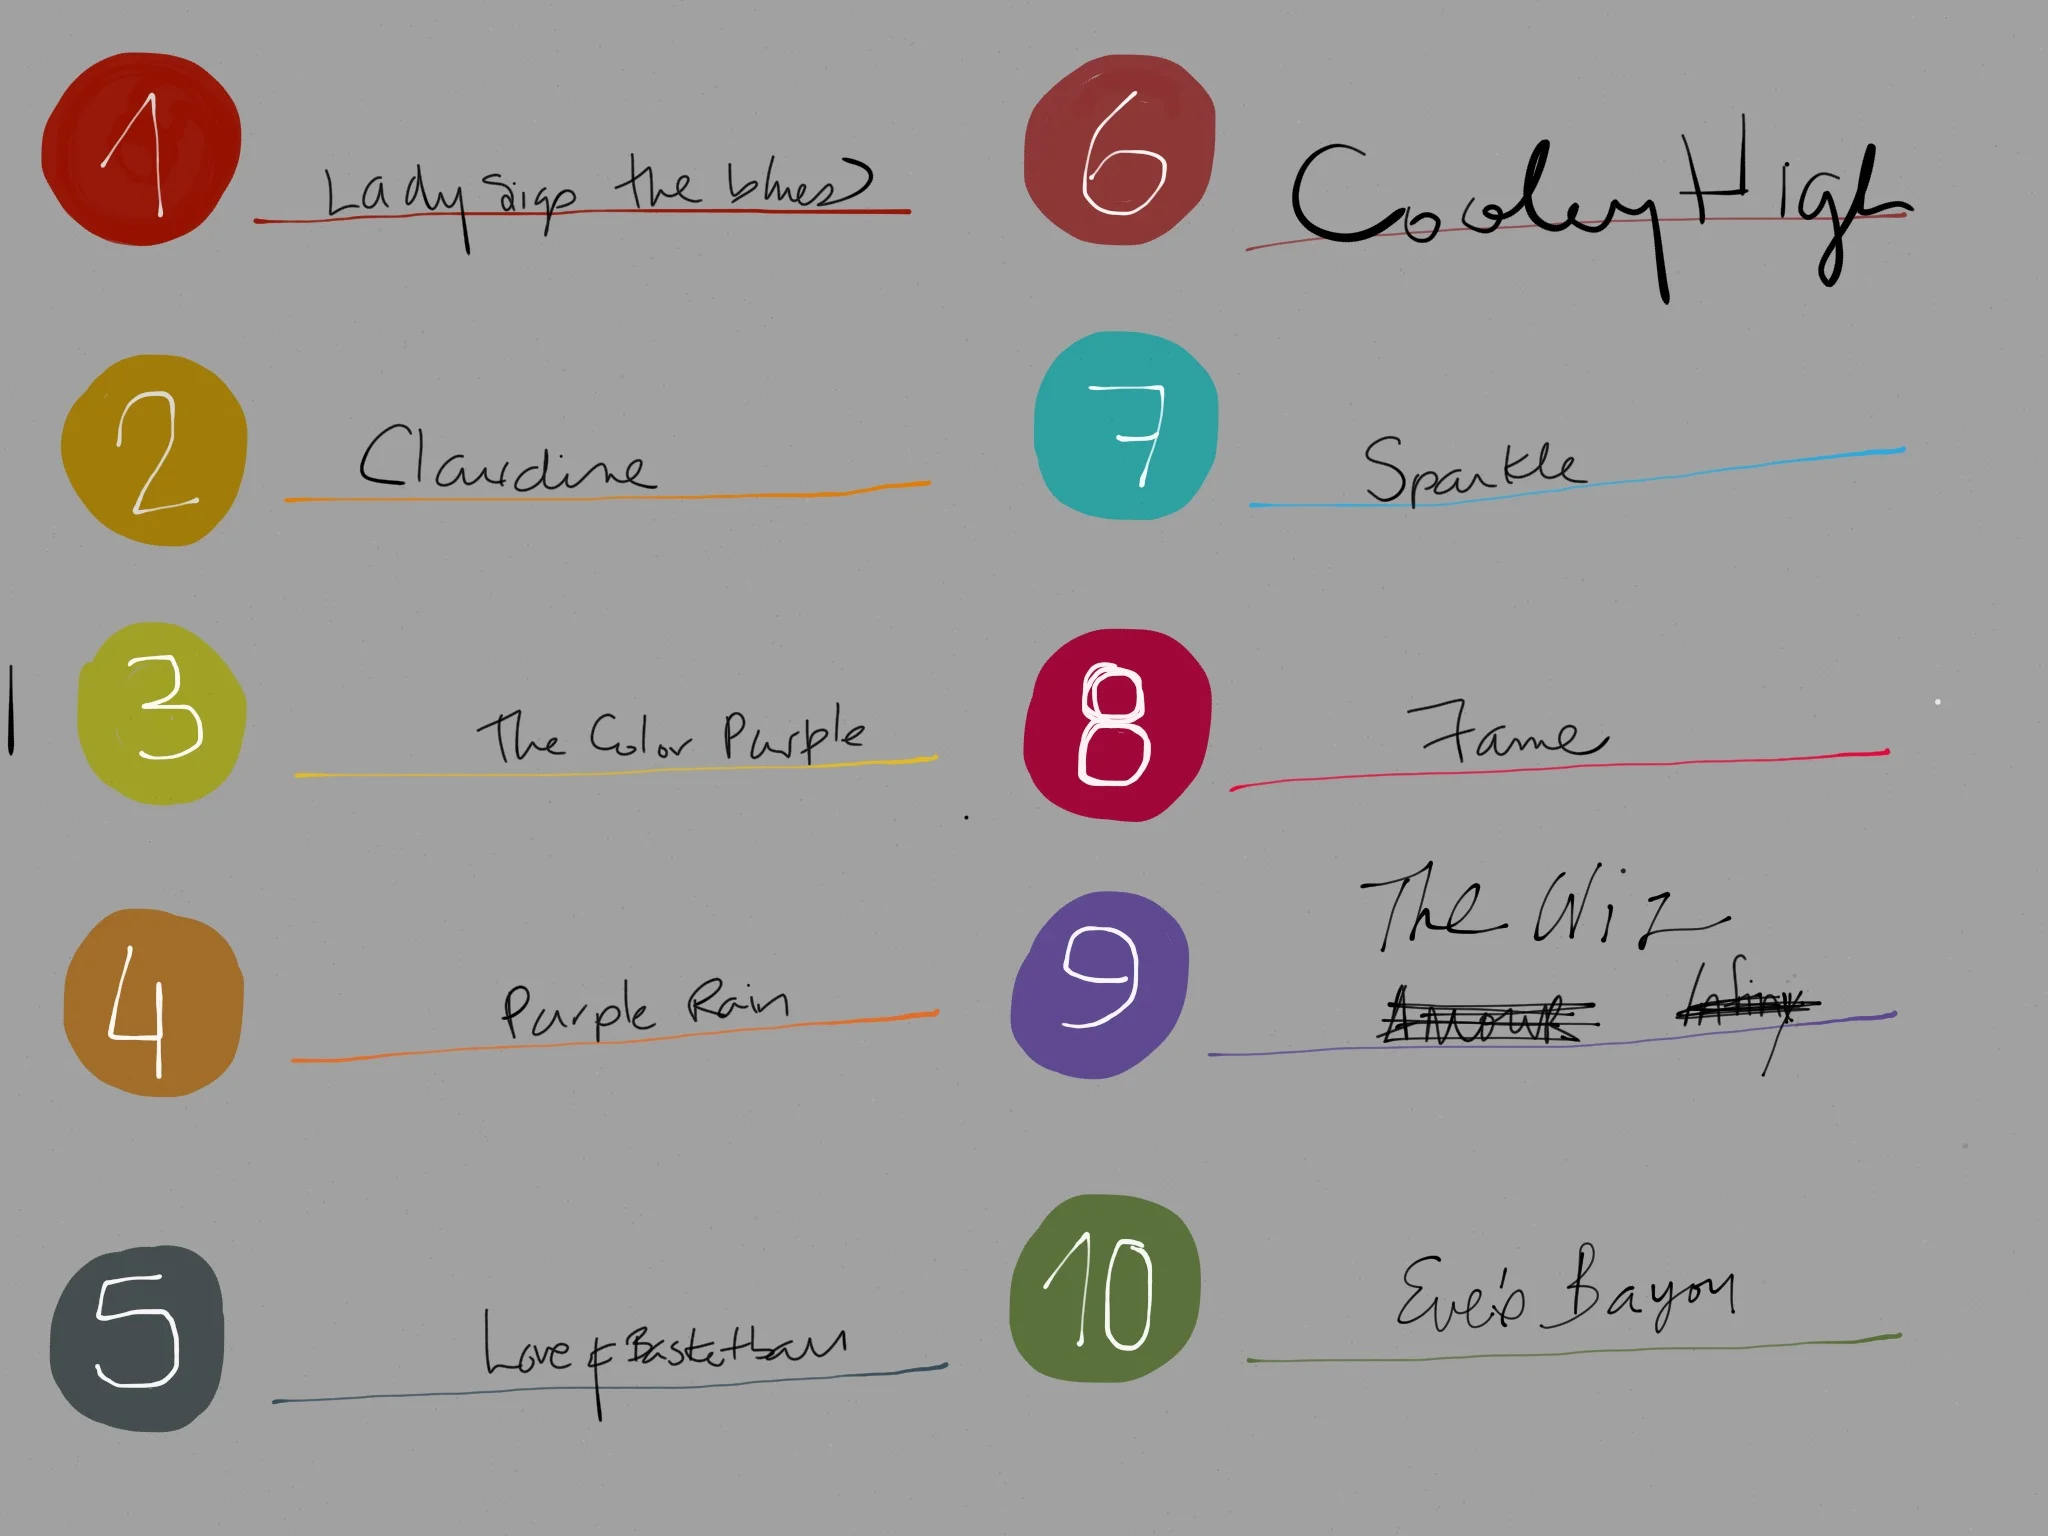 1
Lady Sigs the blues
2
Claudine
3
The Color Purple
4
Purple Rain
5
Love & Basketball
6
Cooley High
7
Sparkle
8
Fame
9
The Wiz
10
Eve's Bayou